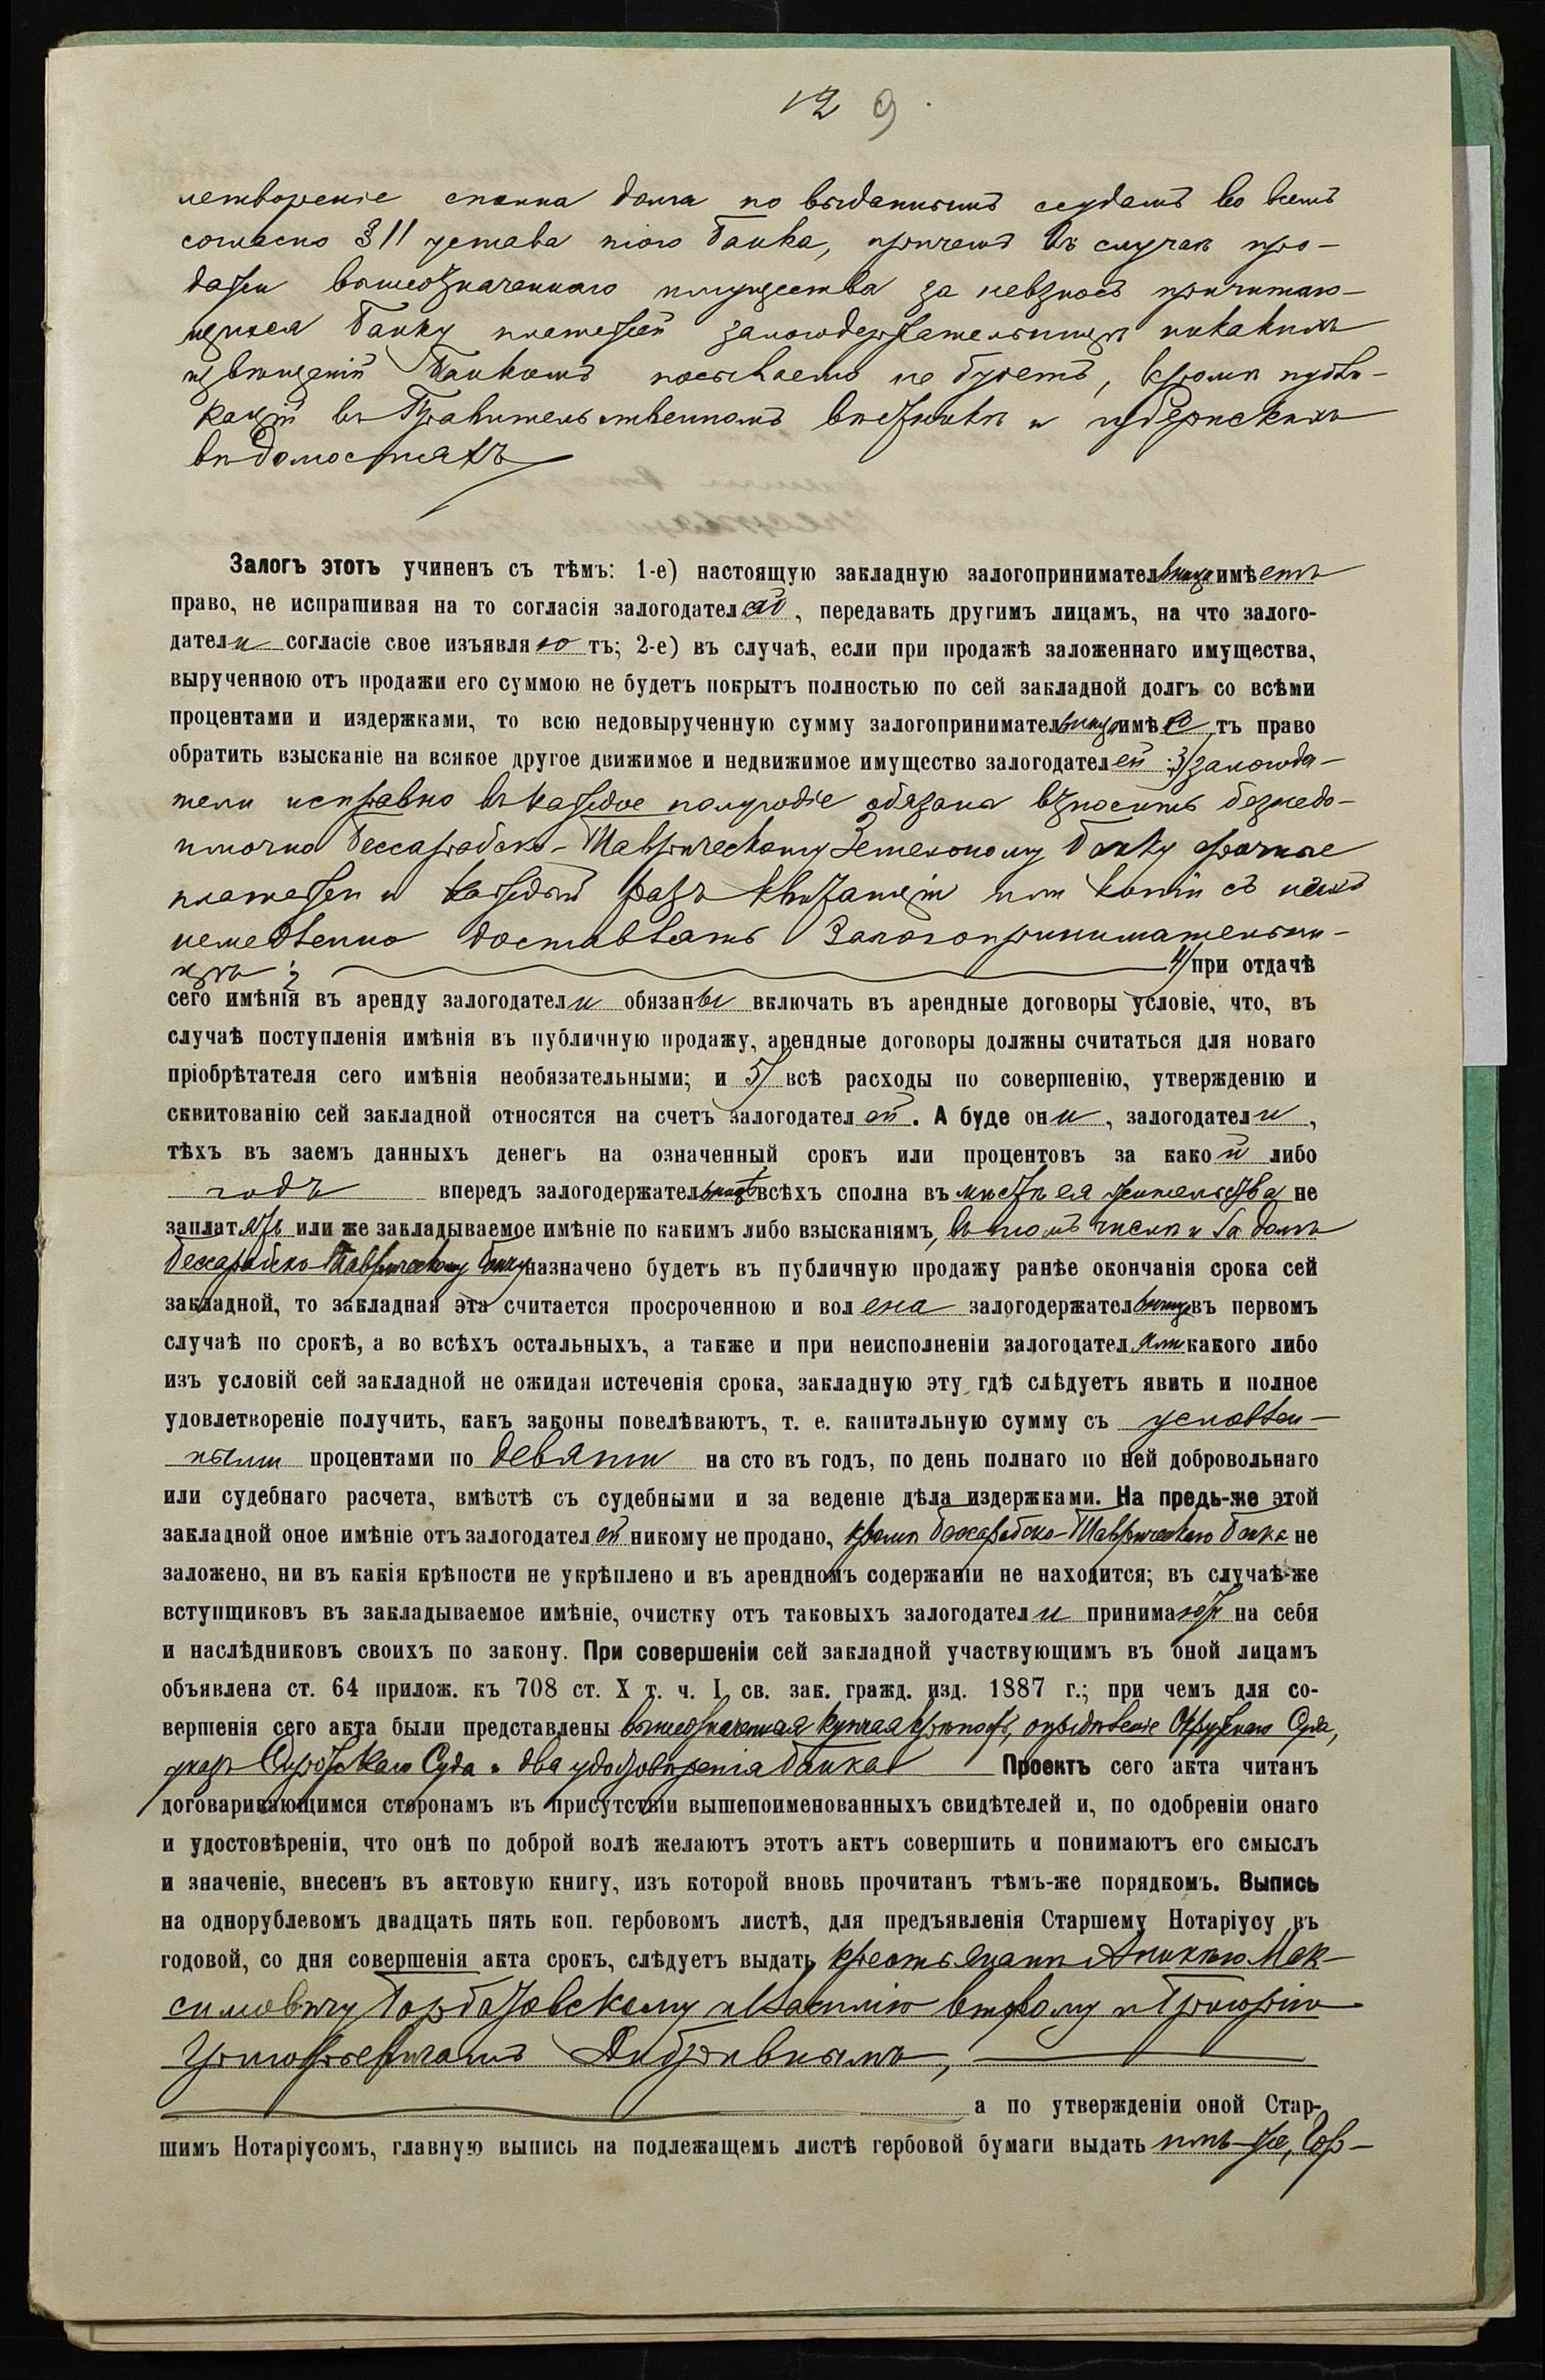 12 9
летвореніе сполна долга по выданнымъ ссудамъ во всемъ
согласно § 11 устава этого банка, причемъ въ случаѣ про-
дажи вышеозначеннаго имущества за невзносъ причитаю-
щихся банку платежей залогодержательницѣ никакихъ
извѣщеній Банкомъ посылаемо не будетъ, кромѣ публи-
кацій въ Правительственномъ вѣстникѣ и губернскихъ
вѣдомостяхъ
Залогъ этотъ учиненъ съ тѣмъ: 1-е) настоящую закладную залогопринимательница имѣетъ
право, не испрашивая на то согласія залогодателей, передавать другимъ лицамъ, на что залого-
датели согласіе свое изъявляютъ; 2-е) въ случаѣ, если при продажѣ заложеннаго имущества,
вырученною отъ продажи его суммою не будетъ покрытъ полностью по сей закладной долгъ со всѣми
процентами и издержками, то всю недовырученную сумму залогопринимательница имѣетъ право
обратить взысканіе на всякое другое движимое и недвижимое имущество залогодателей; 3/ залогода-
тели исправно въ каждое полугодіе обязаны взносить бездо-
имочно Бессарабско-Таврическому Земельному банку срочные
платежи и каждый разъ квитанціи или копіи съ нихъ
немедленно доставлять залогопринимательни-
цѣ; 4/ при отдачѣ
сего имѣнія въ аренду залогодатели обязаны включать въ арендные договоры условіе, что, въ
случаѣ поступленія имѣнія въ публичную продажу, арендные договоры должны считаться для новаго
пріобрѣтателя сего имѣнія необязательными; и 5/ всѣ расходы по совершенію, утвержденію и
сквитованію сей закладной относятся на счетъ залогодателей. А буде они, залогодатели,
тѣхъ въ заемъ данныхъ денегъ на означенный срокъ или процентовъ за какой либо
годъ впередъ залогодержательницѣ всѣхъ сполна въ мѣстѣ ея жительства не
заплатятъ или же закладываемое имѣніе по какимъ либо взысканіямъ, въ томъ числѣ и за долгъ
Бессарабско-Таврическому банку назначено будетъ въ публичную продажу ранѣе окончанія срока сей
закладной, то закладная эта считается просроченною и волена залогодержательница въ первомъ
случаѣ по срокѣ, а во всѣхъ остальныхъ, а также и при неисполненіи залогодателями какого либо
изъ условій сей закладной не ожидая истеченія срока, закладную эту гдѣ слѣдуетъ явить и полное
удовлетвореніе получить, какъ законы повелѣваютъ, т. е. капитальную сумму съ условлен-
ными процентами по девяти на сто въ годъ, по день полнаго по ней добровольнаго
или судебнаго расчета, вмѣстѣ съ судебными и за веденіе дѣла издержками. На предь-же этой
закладной оное имѣніе отъ залогодателей никому не продано, кромѣ Бессарабско-Таврическаго банка не
заложено, ни въ какія крѣпости не укрѣплено и въ арендномъ содержаніи не находится; въ случаѣ-же
вступщиковъ въ закладываемое имѣніе, очистку отъ таковыхъ залогодатели принимаютъ на себя
и наслѣдниковъ своихъ по закону. При совершеніи сей закладной участвующимъ въ оной лицамъ
объявлена ст. 64 прилож. къ 708 ст. X т. ч. I св. зак. гражд. изд. 1887 г.; при чемъ для со-
вершенія сего акта были представлены вышеозначенная купчая крѣпость, опредѣленіе Окружнаго Суда,
указъ Сиротскаго Суда и два удостовѣренія банка Проектъ сего акта читанъ
договаривающимся сторонамъ въ присутствіи вышепоименованныхъ свидѣтелей и, по одобреніи онаго
и удостовѣреніи, что онѣ по доброй волѣ желаютъ этотъ актъ совершить и понимаютъ его смыслъ
и значеніе, внесенъ въ актовую книгу, изъ которой вновь прочитанъ тѣмъ-же порядкомъ. Выпись
на однорублевомъ двадцать пять коп. гербовомъ листѣ, для предъявленія Старшему Нотаріусу въ
годовой, со дня совершенія акта срокъ, слѣдуетъ выдать крестьянамъ Аникію Мак-
симовичу Горбатовскому и Василію второму и Григорію
Григорьевичамъ
а по утвержденіи оной Стар-
шимъ Нотаріусомъ, главную выпись на подлежащемъ листѣ гербовой бумаги выдать имъ-же, Гор-